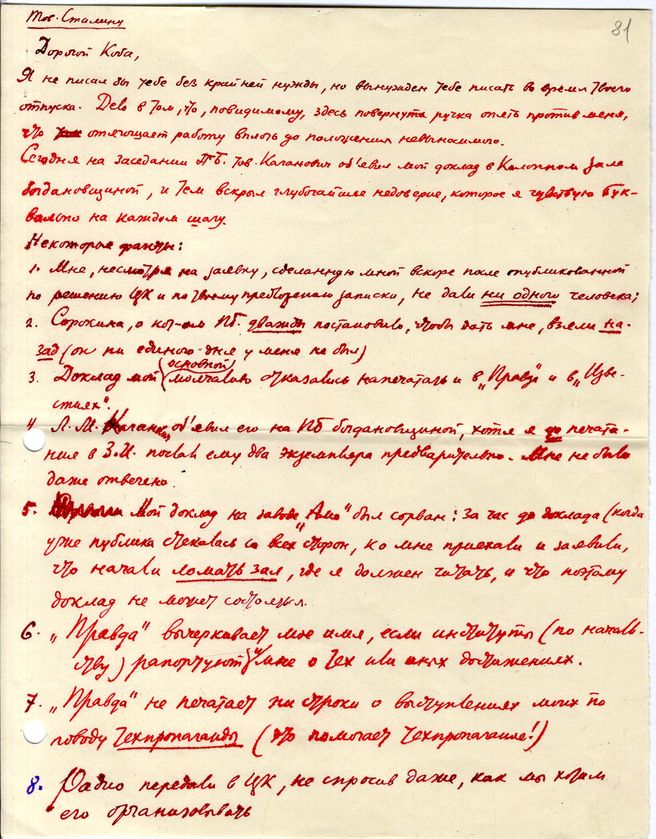 Тов. Сталину
81
Дорогой Коба,
Я не писал бы тебе без крайней нужды, но вынужден тебе писать во время твоего
отпуска. Дело в том, что, повидимому, здесь повернута ручка опять против меня,
что отягощает работу вплоть до положения невыносимого.
Сегодня на заседании ПБ. тов. Каганович об'явил мой доклад в Колонном зале
богдановщиной, и тем вскрыл глубочайшее недоверие, которое я чувствую бук-
вально на каждом шагу.
Некоторые факты:
1. Мне, несмотря на заявку, сделанную мной вскоре после опубликованной
по решению ЦК и по твоему предложению записки, не дали ни одного человека;
2. Сорокина, о кот-ом ПБ. дважды постановило, чтобы дать мне, взяли на-
зад (он ни единого дня у меня не был)
3. Доклад мой (основной) молчаливо отказались напечатать и в „Правде" и в „Изве-
стиях".
4 Л. М. Каганович об'явил его на ПБ богдановщиной, хотя я до печата-
ния в З.И. послал ему два экземпляра предварительно. Мне не было
даже отвечено.
5. Мой доклад на заводе „Амо" был сорван: За час до доклада (когда
уже публика стекалась со всех сторон, ко мне приехали и заявили,
что начали ломать зал, где я должен читать, и что поэтому
доклад не может состояться.
6. „Правда" вычеркивает мое имя, если институты (по началь-
ству) рапортуют и мне о тех или иных достижениях.
7. „Правда" не печатает ни строки о выступлениях моих по
поводу техпропаганды (это помогает техпропаганде!)
8. Радио передали в ЦК, не спросив даже, как мы хотим
его организовывать